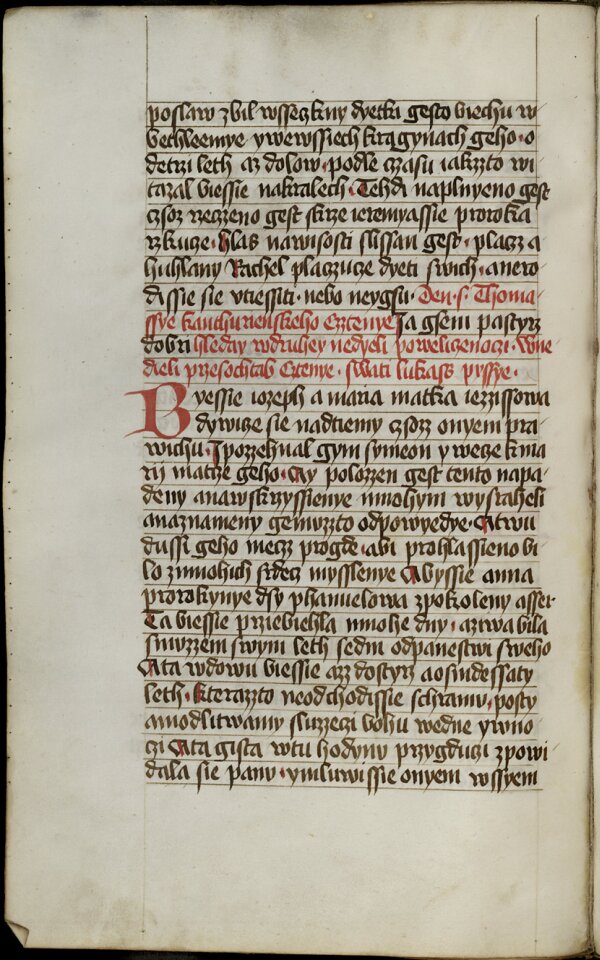 poslaw zbil wsseczkny dyetki gesto biechu w
bethleemye ywewssiech kragynach geho · o
detrzi leth az dolow · podle czasu iakzzto wi
tazal biessie nakralech · Tehdi naplnyeno gest
czsoz rzeczeno gest skrze ieremyassie proroka
rzkucze · hlas nawisosti slissan gest · placz a
huhlany Rachel placzucze dyeti swich · anero
dissie sie vtiessiti · nebo neygsu · Den · s · Thoma
ssye kanthurienskeho Cztenye Ja gsem pastyrz
dobri hleday wdruhey nedyeli poweliczenoczi · Wne
dieli przesochtab Cztenye · swati lukass pyssye ·
Byessie iozeph a maria matka iezzissowa
dywicze sie nadtiemy czsozz onyem pra
wichu · Jpozzehnal gym symeon y wecze kma
rii matcze geho · Ay polozzen gest tento napa
deny anawskrzyssienye mnohym wyzraheli
anaznameny gemuzzto odpowyedye · Atwu
dussi geho mecz progde · abi prohlassieno bi
lo zmnohich srdecz mysslenye Abyssie anna
prorokynye dsy phanuelowa zpokoleny asser
Ta biessie przebiehla mnohe dny · azwabila
smuzzem swym leth sedm odpanestwi sweho
Ata wdowu biessie azz dostyrz aosmdessaty
leth · kterazzto neodchodissie schramu · posty
amodlitwamy sluzzeczi bohu wedne ywno
czi Ata gista wtu hodynu przygduczi zpowi
dala sie panu · ymluwissie onyem wssyem